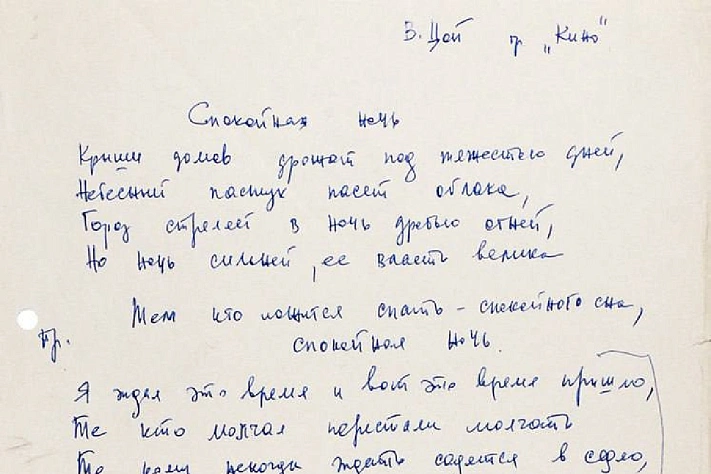 В. Цой гр „Кино"
Спокойная ночь
Крыши домов дрожат под тяжестью дней,
Небесный пастух пасет облака,
Город стреляет в ночь дробью огней,
Но ночь сильней, ее власть велика
Тем кто ложится спать – спокойного сна,
Пр.
спокойная ночь.
Я ждал это время и вот это время пришло,
Те кто молчал перестали молчать
Те кому некогда ждать садятся в седло,